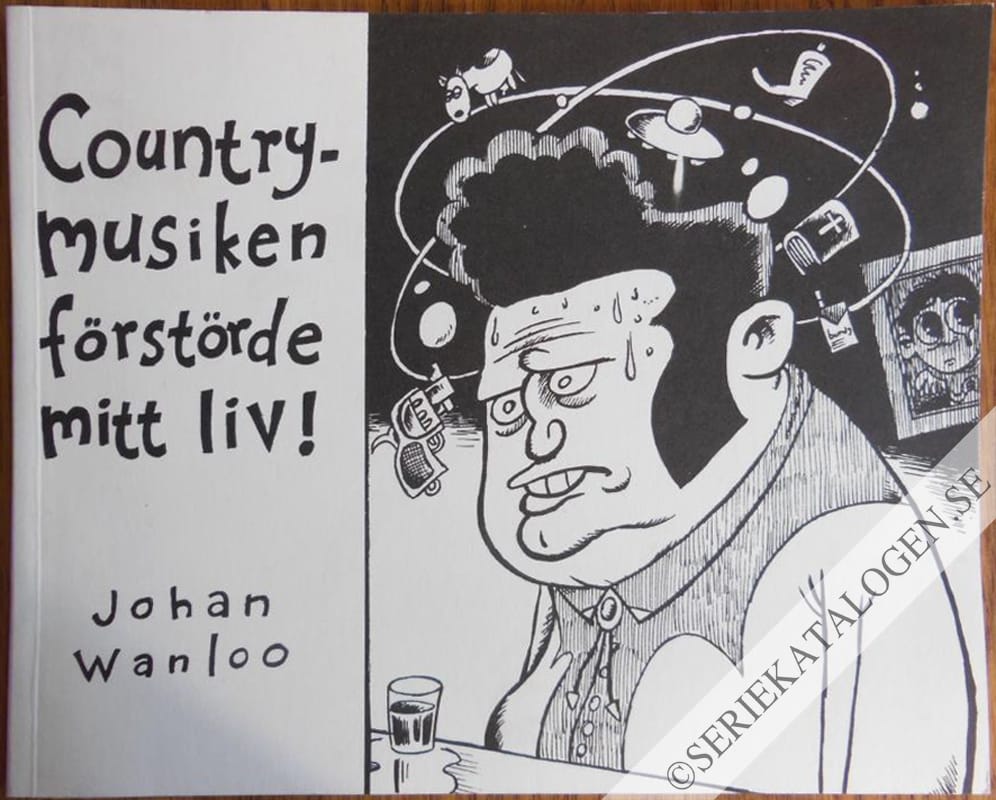 Country-
musiken
förstörde
mitt liv!
Johan
Wanloo
©SERIEKATALOGEN.SE